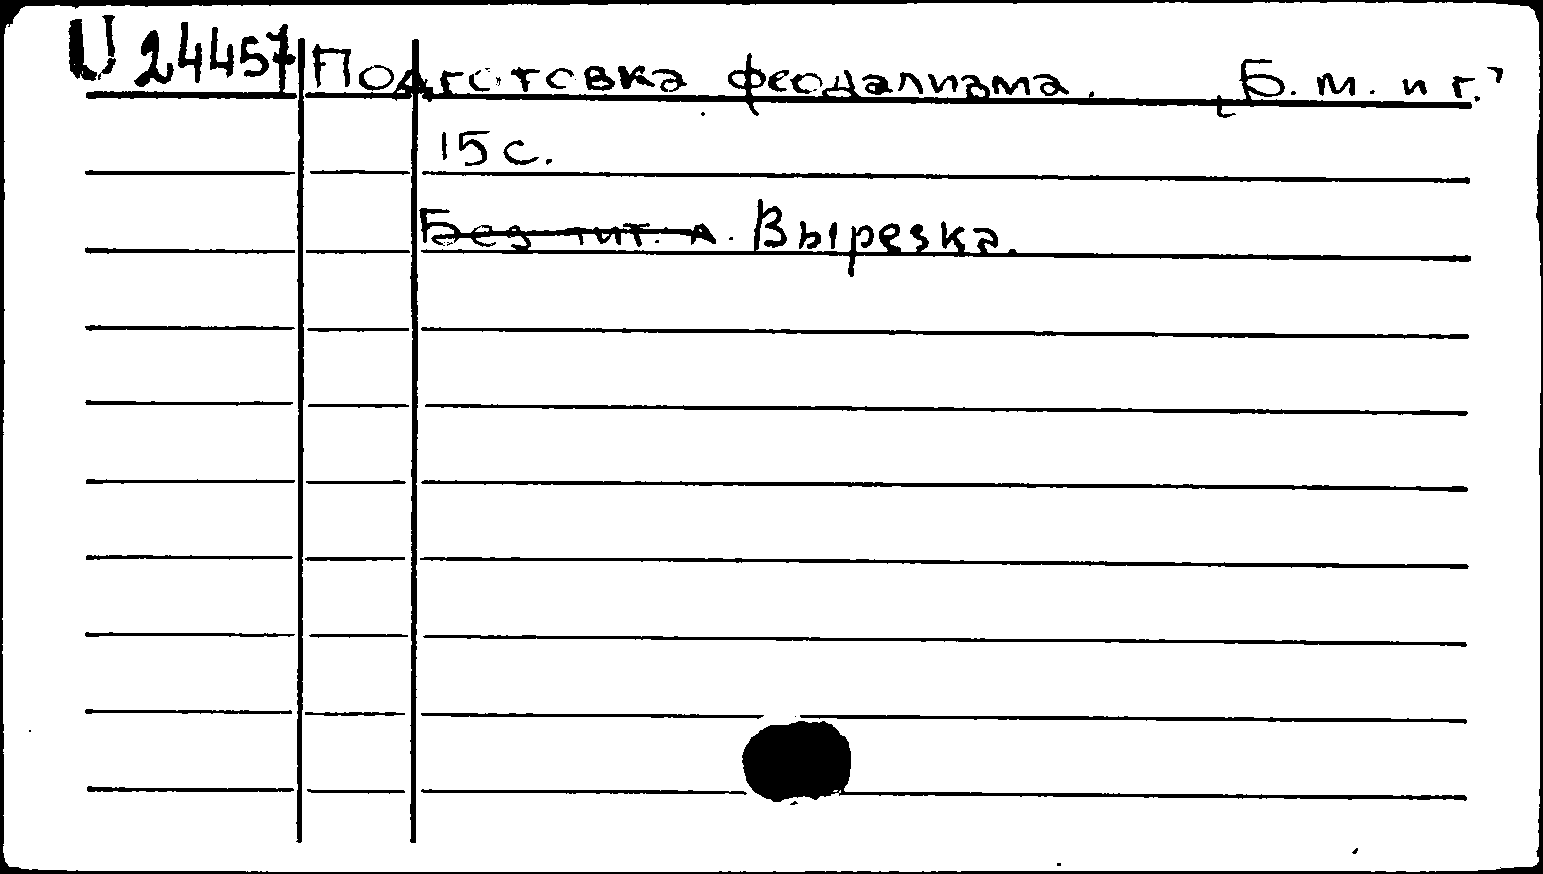 U 24457 Подготовка феодализма. [Б. м. и г.]
15 с.
Без тит. л. Вырезка.